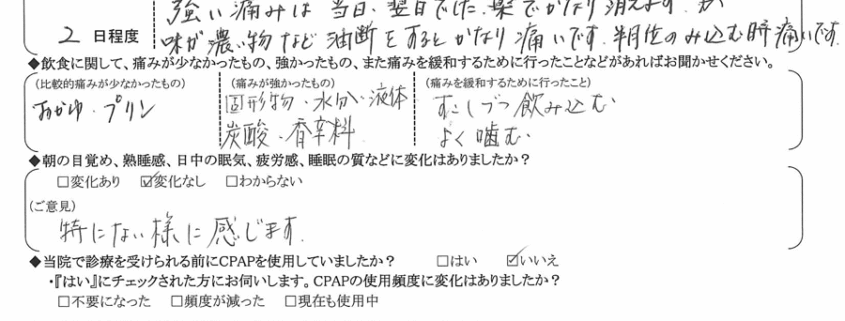 強い痛みは 当日、翌日でした、薬でかなり消えます。が
2 日程度
味が濃い物など油断をするとかなり痛いです。半月位のみ込む時痛いです
◆飲食に関して、痛みが少なかったもの、強かったもの、また痛みを緩和するために行ったことなどがあればお聞かせください。
(比較的痛みが少なかったもの) (痛みが強かったもの) (痛みを緩和するために行ったこと)
おかゆ・プリン 固形物・水分・液体 すこしづつ飲み込む
炭酸・香辛料 よく噛む
◆朝の目覚め、熟睡感、日中の眠気、疲労感、睡眠の質などに変化はありましたか？
□変化あり ☑変化なし □わからない
(ご意見)
特にない様に感じます。
◆当院で診療を受けられる前にCPAPを使用していましたか？ □はい ☑いいえ
・『はい』にチェックされた方にお伺いします。CPAPの使用頻度に変化はありましたか？
□不要になった □頻度が減った □現在も使用中